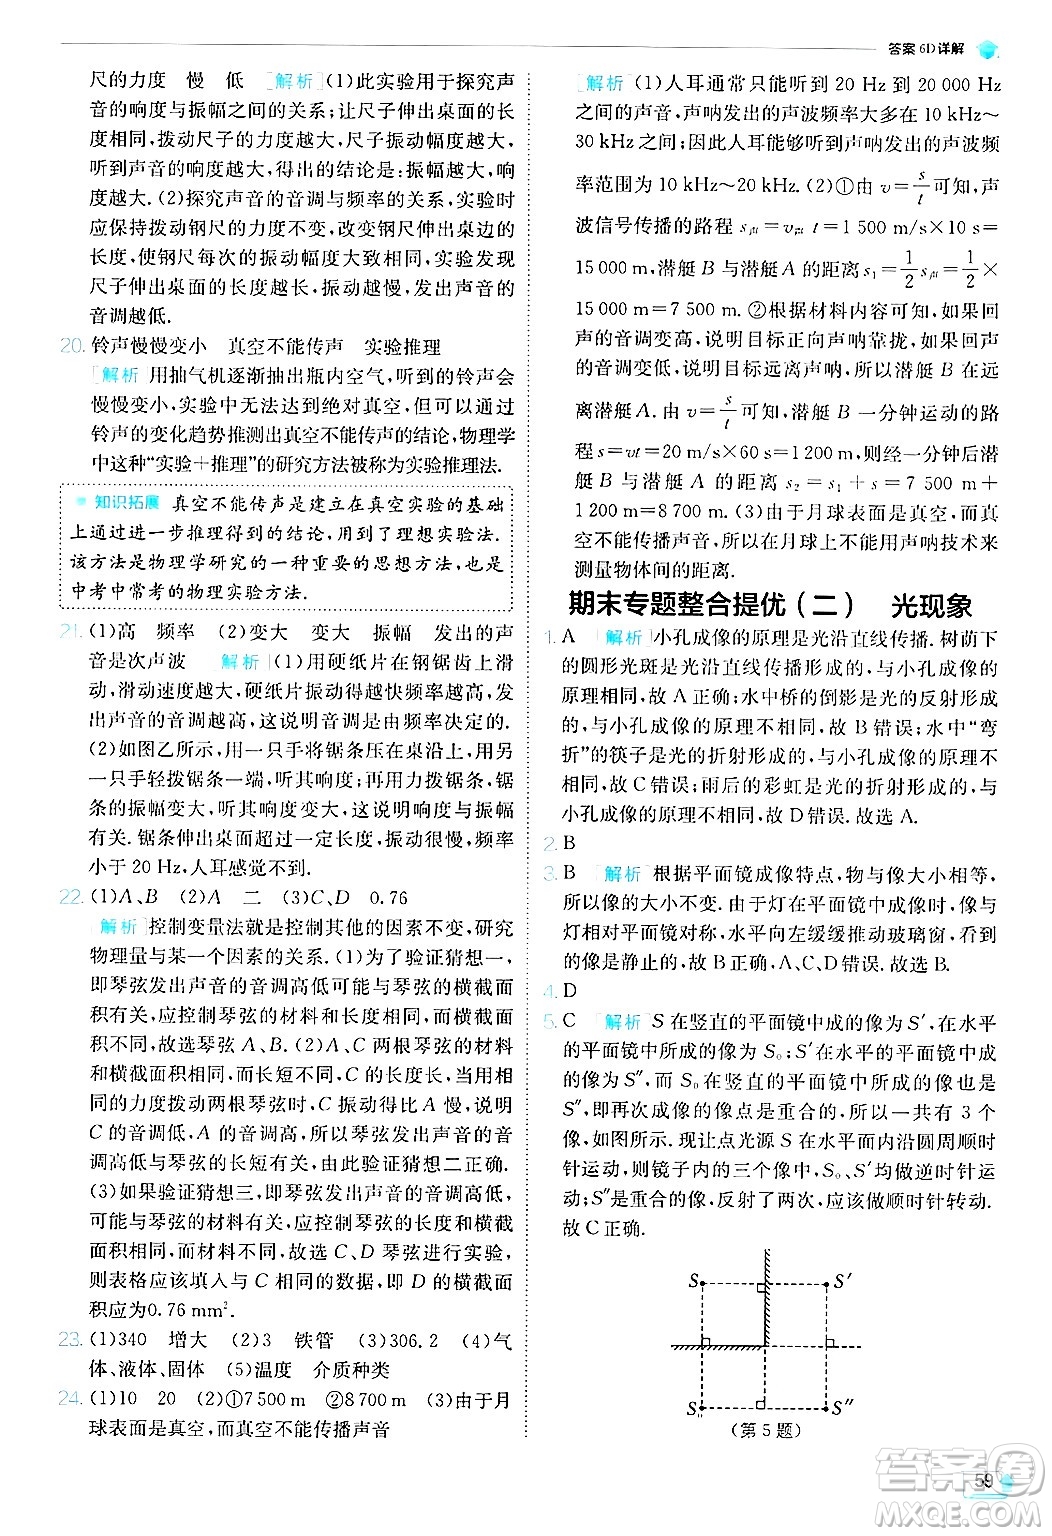 答案 6D 详解
尺的力度 慢 低 [解析](1)此实验用于探究声
音的响度与振幅之间的关系;让尺子伸出桌面的
长度相同,拨动尺子的力度越大,尺子振动幅度越大,
听到声音的响度越大,得出的结论是:振幅越大,
响度越大.(2)探究声音的音调与频率的关系,实验时
应保持拨动钢尺的力度不变,改变钢尺伸出桌边的
长度,使钢尺每次的振动幅度大致相同,实验发现
尺子伸出桌面的长度越长,振动越慢,发出声音的
音调越低.
20. 铃声慢慢变小 真空不能传声 实验推理
[解析] 用抽气机逐渐抽出瓶内空气,听到的铃声会
慢慢变小,实验中无法达到绝对真空,但可以通过
铃声的变化趋势推测出真空不能传声的结论,物理学
中这种“实验+推理”的研究方法被称为实验推理法.
知识拓展 真空不能传声是建立在真空实验的基础
上通过进一步推理得到的结论,可以称为理想实验.
该方法是物理学研究的一种重要的思想方法,也是
中考中常考的物理实验方法.
21. (1)高 频率 (2)变大 变大 振幅 发出的声
音是次声波 [解析](1)用硬纸片在钢锯齿上滑
动速度越大,硬纸片振动得越快频率越大,
发出声音的音调越高,音调是由频率决定的.
(2)如图乙所示,用一只手将锯条压在桌沿上,用另
一只手轻拨锯条一端,听其响度;再用力拨锯条,锯
条的振幅变大,听其响度变大,说明响度与振幅
有关.锯条伸出桌面超过一定长度,振动很慢,频率
小于 20 Hz,人耳感觉不到.
22. (1)A、B (2)A 二 (3)C、D 0.76
[解析]控制变量法就是控制其他的因素不变,研究
物理量与某一个因素的关系.(1)为了验证猜想一,
即琴弦发出声音的音调高低可能与琴弦的横截
面积有关,应控制琴弦的材料和长度相同,横截面
积不同,故选琴弦 A、B.(2)A、C 两根琴弦的材料
和横截面积相同,但长短不同,用尺子分别用相
同的力度拨动两根琴弦,C 振动得比 A 慢,说明
C 的音调低,A 的音调高,所以琴弦发出声音的音
调高低与琴弦的长短有关,由此验证猜想二正确.
(3)如果验证猜想三,琴弦发出声音的音调高低,
可能与琴弦的材料有关,应控制琴弦的长度和横截
面积相同,材料不同,所以选 C、D 琴弦进行实验,
则表格应该填入与 C 相同的数据,即 D 的横截面
积应为0.76 mm².
23. (1)340 增大 (2)3 铁管 (3)306.2 (4)气
体、液体、固体 (5)温度 介质种类
24. (1)10 20 (2)①7 500 m ②8 700 m (3)由于月
球表面是真空,而真空不能传播声音
[解析](1)人耳通常只能听到 20 Hz 到 20 000 Hz
之间的声音,声呐发出的声波频率大多在 10 kHz~
30 kHz之间;因此人耳能够听到声呐发出的声波频
率范围为 10 kHz~20 kHz.(2)①由 v=s/t可知,声
波信号传播的路程 s声=v声 t=1 500 m/s×10 s=
15 000 m,潜艇 B 与潜艇 A 的距离 s₁=1/2 s声=1/2×
15 000 m=7 500 m.②根据材料内容可知,如果回
声的音调变高,说明目标正向声呐靠拢,如果回声
的音调变低,说明目标远离声呐,所以潜艇 B 在远
离潜艇 A.由 v=s/t可知,潜艇 B 一分钟运动的路
程 s=vt=20 m/s×60 s=1 200 m,此时潜艇 B
与潜艇 A 的距离 s₂=s₁+s=7 500 m+
1 200 m=8 700 m.(3)由于月球表面是真空,而真
空不能传播声音,所以在月球上不能用声呐技术来
测量物体间的距离.
期末专题整合提优(二) 光现象
1. A [解析]小孔成像的原理是光沿直线传播.树荫下
的圆形光斑是光沿直线传播形成的,与小孔成像的
原理相同,故 A 正确;水中桥的倒影是光的反射形成
的,与小孔成像的原理不相同,故 B 错误;水中“弯
折”的筷子是光的折射形成的,与小孔成像的原理不
相同,故 C 错误;雨后的彩虹是光的折射形成的,与
小孔成像的原理不相同,故 D 错误.故选 A.
2. B
3. B [解析]根据平面镜成像特点,物与像关于镜面
对称,像的大小不变.由于灯在平面镜中成像时,像与
灯对平面镜对称,水平向左缓缓推动玻璃窗,看到的
像是静止的.故 B 正确,A、C、D 错误.
4. D
5. C [解析] S 在竖直的平面镜中成的像为 S′,在水平
的平面镜中成的像为 S₀;S′在水平的平面镜中成
的像为 S″,S₀ 在竖直的平面镜中所成的像也是
S″,即再次成像的像点是重合的,一共有 3 个
像,如图所示.现让点光源 S 在水平面内沿圆周顺时
针运动,则镜子内的第一次成的像,做逆时针运
动,S″是重合的像,反射了两次,应该做顺时针转动.
故 C 正确.
S S′
S₀ S″
(第 5 题)
59
答案圈
MXQE.COM